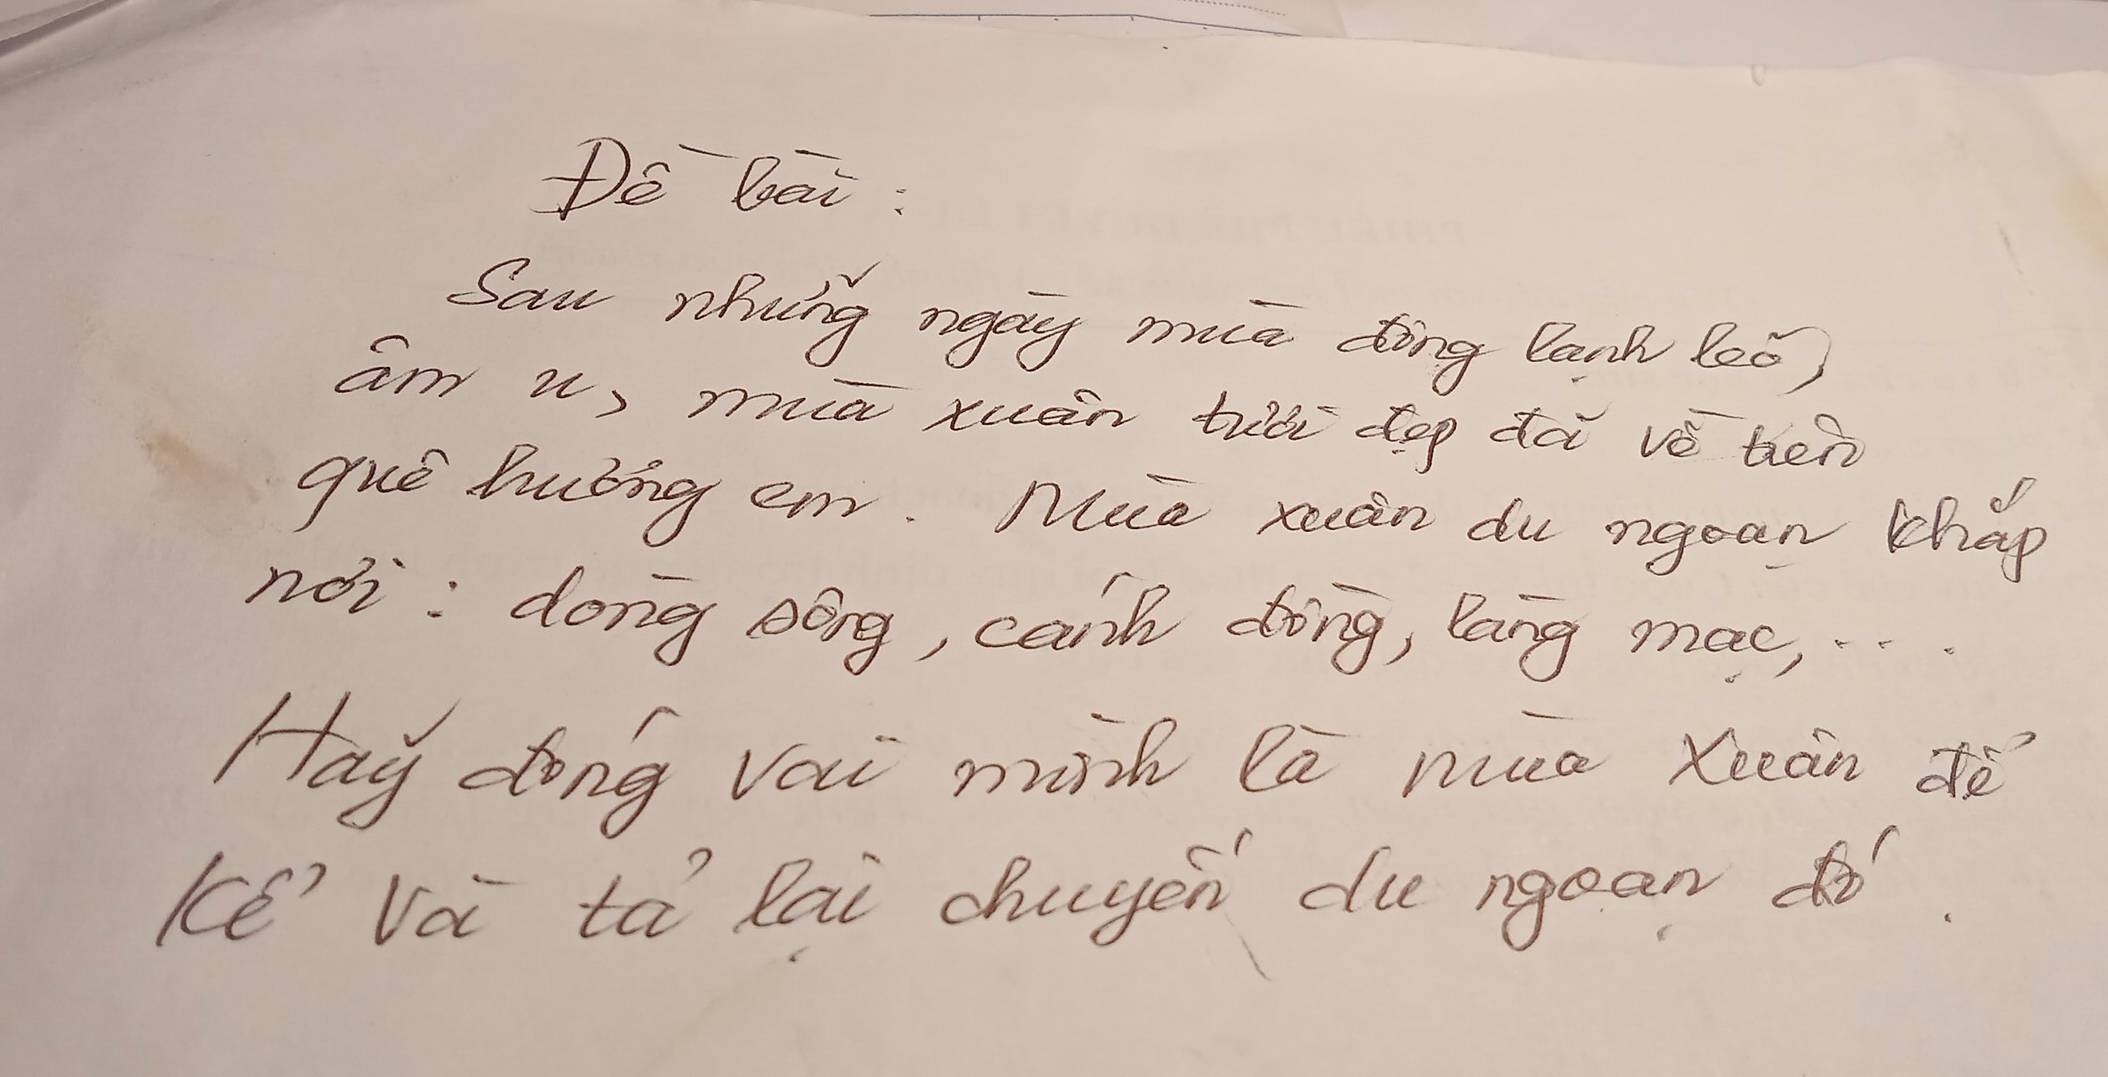 Đề bài :
Sau những ngày mùa đông lạnh lẽo,
âm u, mùa xuân tươi đẹp đã về trên
quê hương em. Mùa xuân du ngoạn khắp
nơi : dòng sông, cánh đồng, làng mạc, ...
Hãy đóng vai mình là mùa xuân để
kể và tả lại chuyến du ngoạn đó.